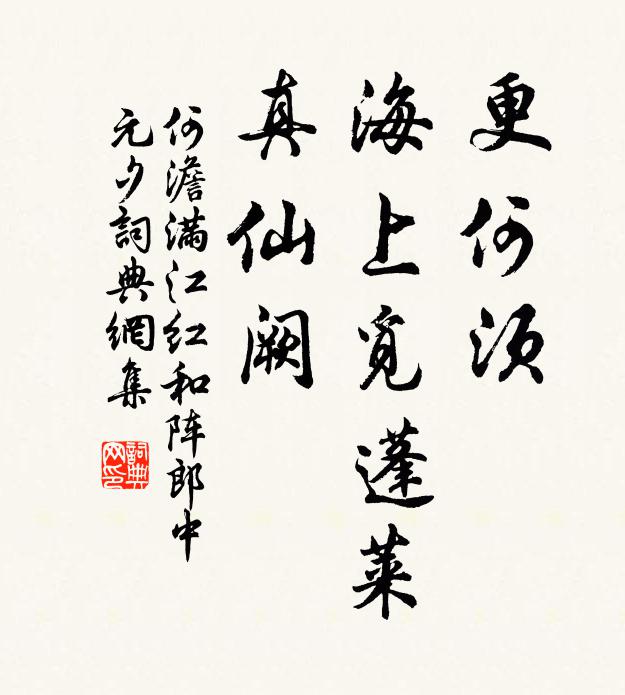 更何须
海上觅蓬莱
真仙阙
何澹满江红和阵郎中
元夕詞典網集
詞典
网印